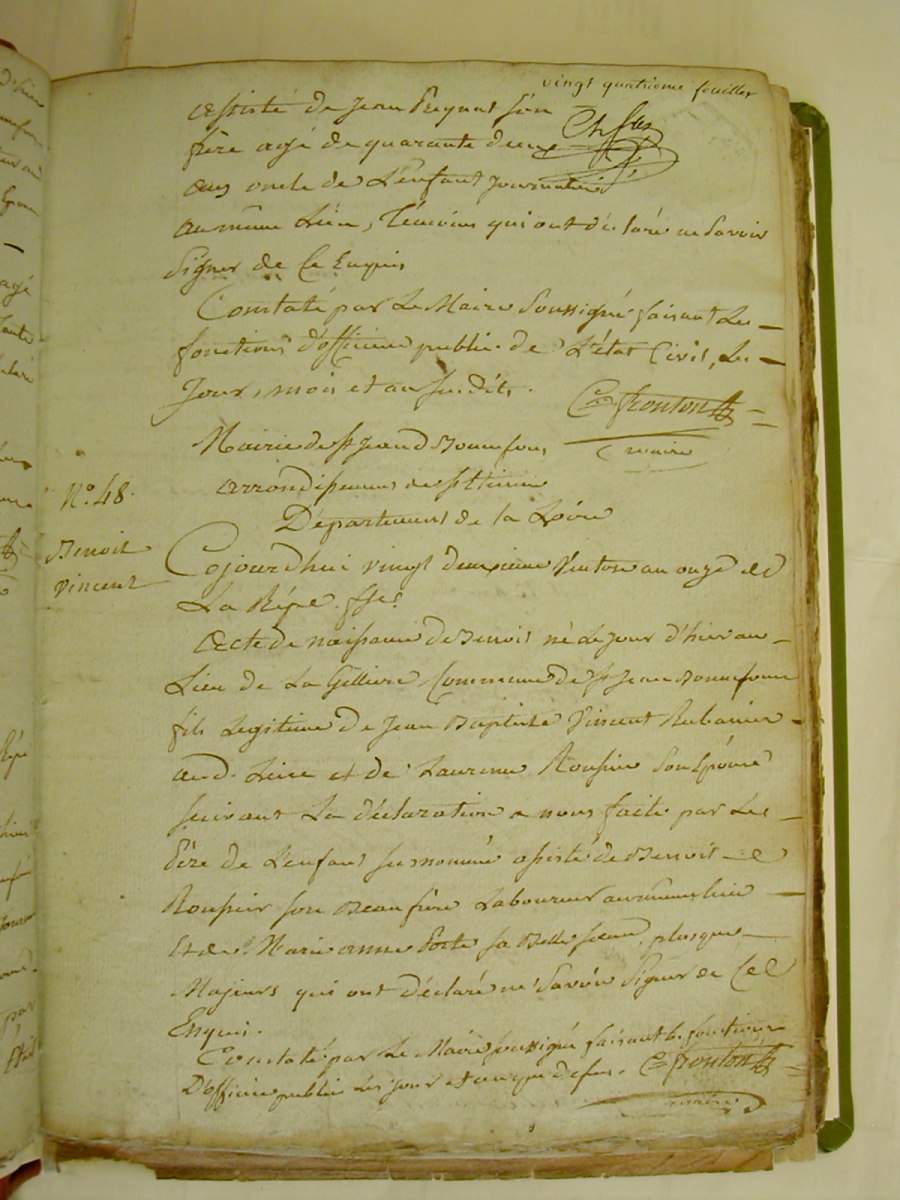 vingt quatrieme feuillet
assisté de Jean Peignat son
frère agé de quarante deux
ans oncle de L'enfant journalier
au même Lieu, Témoins qui ont déclaré ne Savoir
Signer de Ce Enquis
Constaté par Le Maire Soussigné faisant Les
fonctions d'officier public de L'état Civil, Les
Jour, mois et an susdits.
fronton
maire
Mairie de st Jean d Bonnefous
arrondissement de st Etienne
Département de la Loire
N.o 48.
Benoit
Vincent
Cejourd'hui vingt deuxieme Ventose an onze de
La Répe. fse.
Acte de naissance de Benoit né Le jour d'hier au
Lieu de La Gilliere Commune de st Jean Bonnefous
fils Legitime de Jean Baptiste Vincent Rubanier
aud. Lieu et de Laurence Rousier Son Epouse
suivant La déclaration a nous faite par Le
Père de L'enfant susnommé assisté de Benoit
Rousier son Beau frère Laboureur au même lieu
Et de Marie anne Porte sa Belle soeur, plus que
Majeurs qui ont déclaré ne Savoir Signer de Ce
Enquis.
Constaté par Le Maire soussigné faisant les fonctions
D'officier public Les jour et an que dessus. fronton
maire